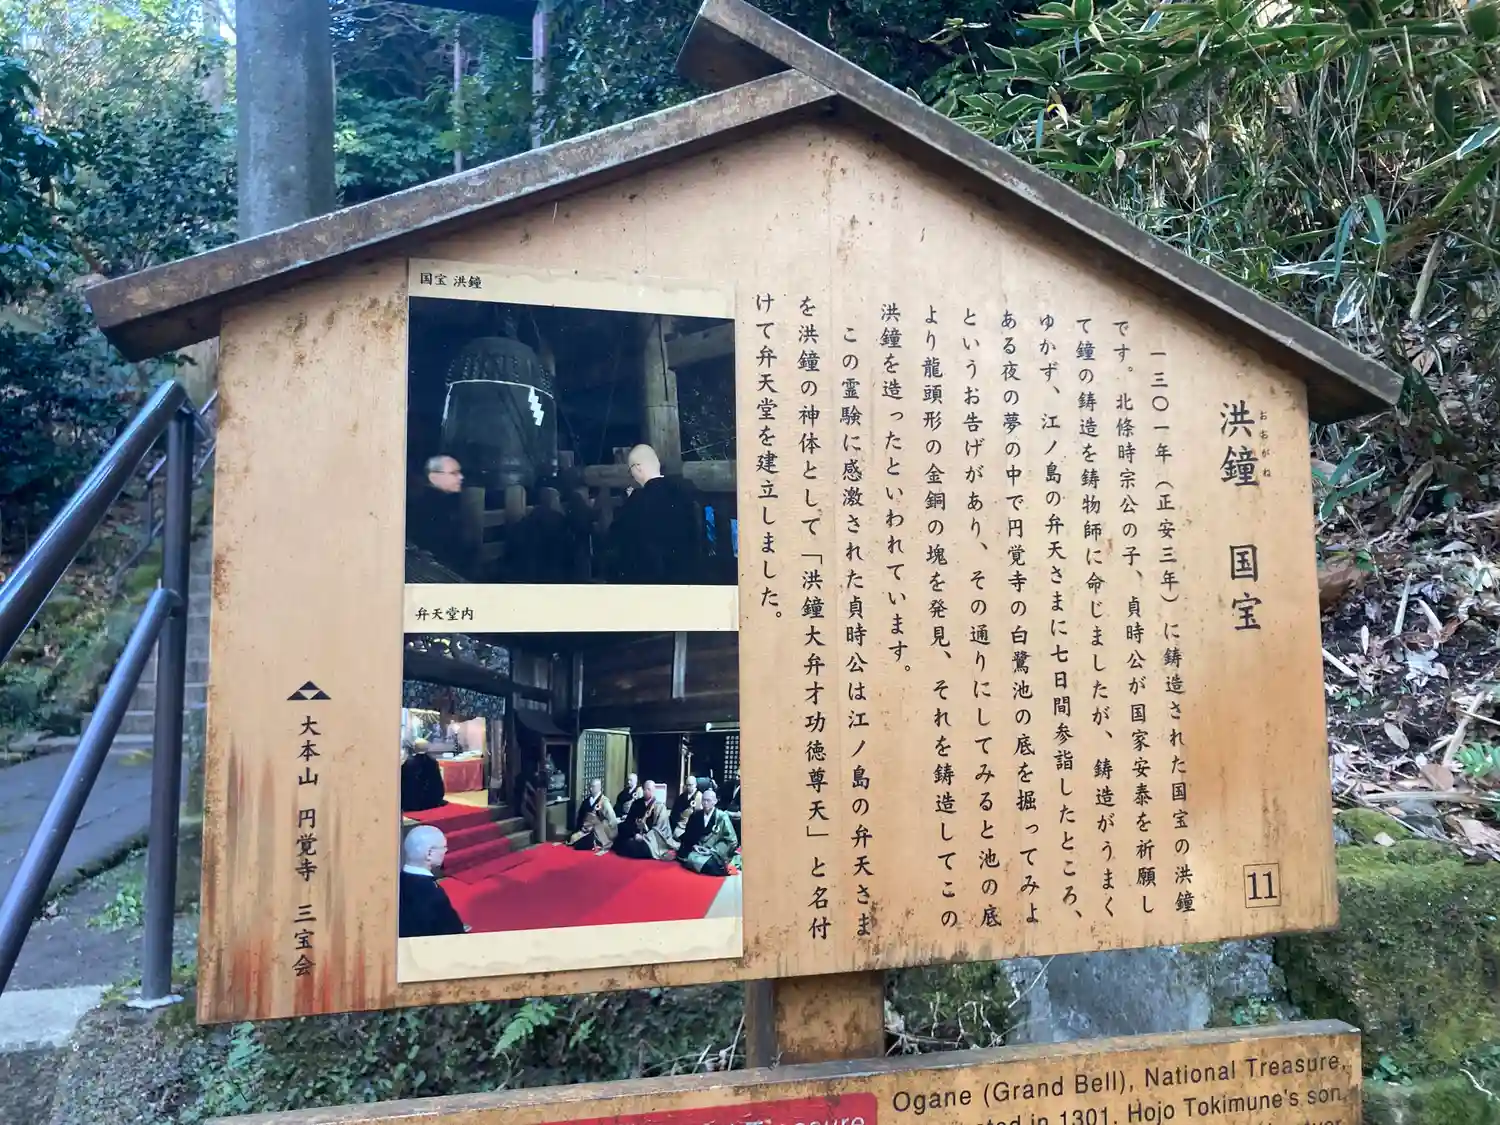 洪鐘 国宝
おおがね
一三〇一年（正安三年）に鋳造された国宝の洪鐘
です。北條時宗公の子、貞時公が国家安泰を祈願し
て鐘の鋳造を鋳物師に命じましたが、鋳造がうまく
ゆかず、江ノ島の弁天さまに七日間参詣したところ、
ある夜の夢の中で円覚寺の白鷺池の底を掘ってみよ
というお告げがあり、その通りにしてみると池の底
より龍頭形の金銅の塊を発見、それを鋳造してこの
洪鐘を造ったといわれています。
この霊験に感激された貞時公は江ノ島の弁天さま
を洪鐘の神体として「洪鐘大弁才功徳尊天」と名付
けて弁天堂を建立しました。
11
国宝 洪鐘
弁天堂内
大本山 円覚寺 三宝会
Ogane (Grand Bell), National Treasure,
in 1301. Hojo Tokimune's son,